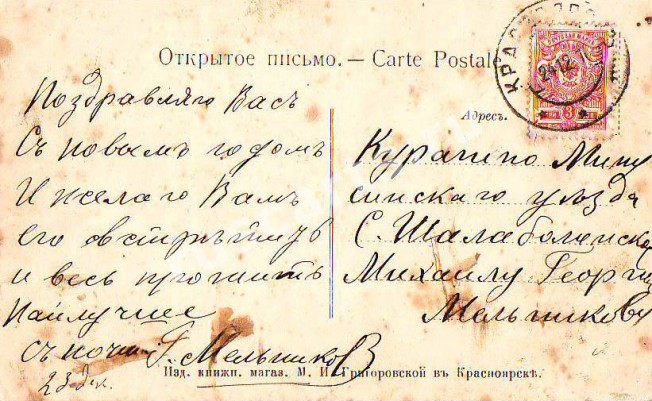 Открытое письмо. — Carte Postale
КРАСНОЯРСК
24 12
3
Поздравляю Васъ
Съ новымъ годомъ
И желаю Вамъ
его встрѣтить
и весь прожить
Наилучше
Г. Мельниковъ
23 дек.
Адресъ.
Курагино Мину
синскаго уѣзда
С. Шалаболенское
Михаилу Георги
Мельникову
Изд. книжн. магаз. М. И. Григоровской въ Красноярскѣ.